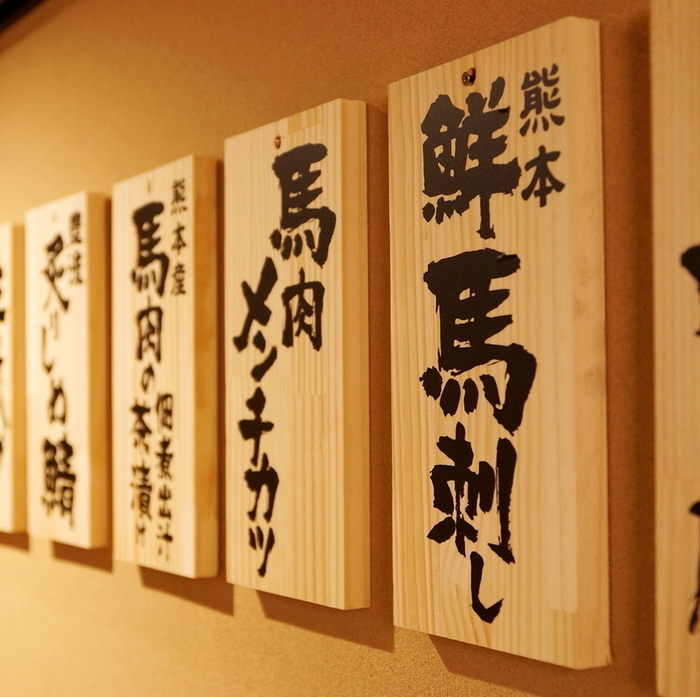 熊本
鮮馬刺し
馬肉
メンチカツ
熊本産
馬肉の茶漬け
佃煮出汁
炙りしめ鯖